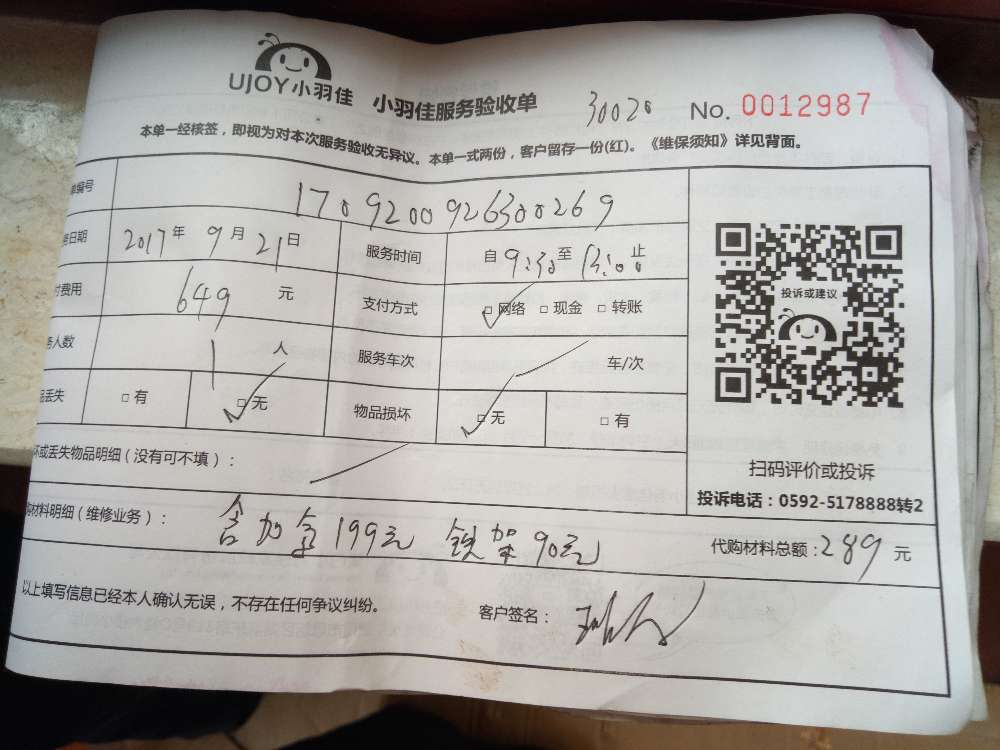 UJOY小羽佳 小羽佳服务验收单 30020 No. 0012987
本单一经核签，即视为对本次服务验收无异议。本单一式两份，客户留存一份(红)。《维保须知》详见背面。
单编号 1709200926300269
日期 2017年9月21日 服务时间 自9:30至13:00止
付费用 649 元 支付方式 □网络 □现金 □转账
务人数 1 人 服务车次 车/次
品丢失 □有 □无 物品损坏 □无 □有
坏或丢失物品明细（没有可不填）：
材料明细（维修业务）： 含加 199元 铁架90元 代购材料总额：289元
以上填写信息已经本人确认无误，不存在任何争议纠纷。 客户签名：
投诉或建议
扫码评价或投诉
投诉电话：0592-5178888转2